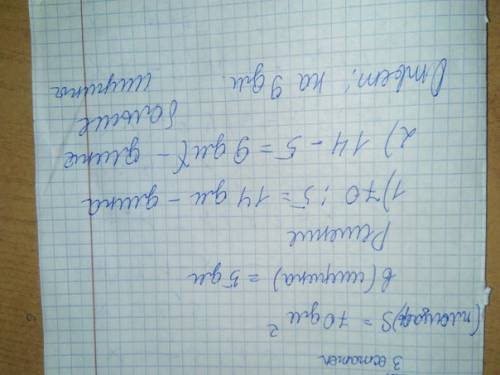 3 остаток
(площадь) S = 70 дм²
b (ширина) = 5 дм
Решение
1) 70 : 5 = 14 дм - длина
2) 14 - 5 = 9 дм ( - длине
больше
Ответ: на 9 дм. ширина